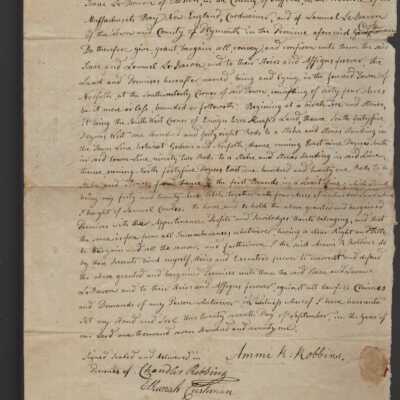 Isaac LeBaron of
Massachusetts Bay New England, Cordwainer, and of Samuel LeBaron
of the Town and County of Plymouth in the Province aforesaid
Do therefore, give, grant bargain sell, convey, and confirm unto them the said
Isaac and Samuel LeBaron, and to their Heirs and Assigns forever, the
Land and Premises hereafter named lying and being in the forward Town of
Norfolk, at the southwesterly Corner of said Town, consisting of sixty four Acres
be it more or less, bounded as followeth: Beginning at a
it being the South West Corner of Ensign Land, thence South forty five
Degrees West one hundred and forty eight Rods to a Stake and Stones standing in
the Town Line between Goshen and Norfolk, thence running East nine Degrees North
in said Town Line ninety two Rods to a Stake and Stones standing in said Line,
thence running North forty four Degrees East one hundred and twenty one Rods to a
Stake and Stones, from thence to the first Bounds in a strait Line; which Land
being sixty and Acres, together with four Acres of
I bought of Samuel To have and to hold the above granted and bargained
Premises with the Appurtenances, Profits and Priviledges thereto belonging, and that
the same is free from all Incumbrances whatsoever, having a clear Right and Title
to Bargain and sell the same, and furthermore I the said Ammi R. Robbins do
by these Presents bind myself, Heirs and Executors forever to warrant and defend
the above granted and bargained Premises unto them the said Isaac and Samuel
LeBaron and to their Heirs and Assigns forever, against all lawful Claims
and Demands of any Person whatsoever. In Witness whereof I have hereunto
set my Hand and Seal this twenty seventh Day of September, in the Year of
our Lord one thousand seven hundred and seventy one.
Signed sealed and delivered in
Presence of
Ammi R. Robbins.
Chandler Robbins
Cushman